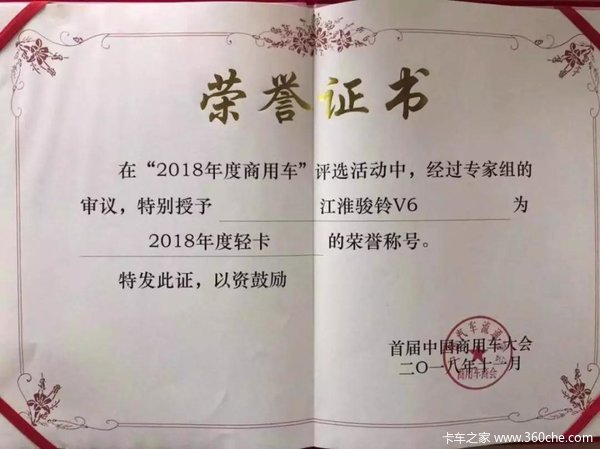 荣誉证书
在“2018年度商用车”评选活动中，经过专家组的
审议，特别授予 江淮骏铃V6 为
2018年度轻卡 的荣誉称号。
特发此证，以资鼓励
首届中国商用车大会
二〇一八年十一月
汽车流通
商用车商会
卡车之家 www.360che.com